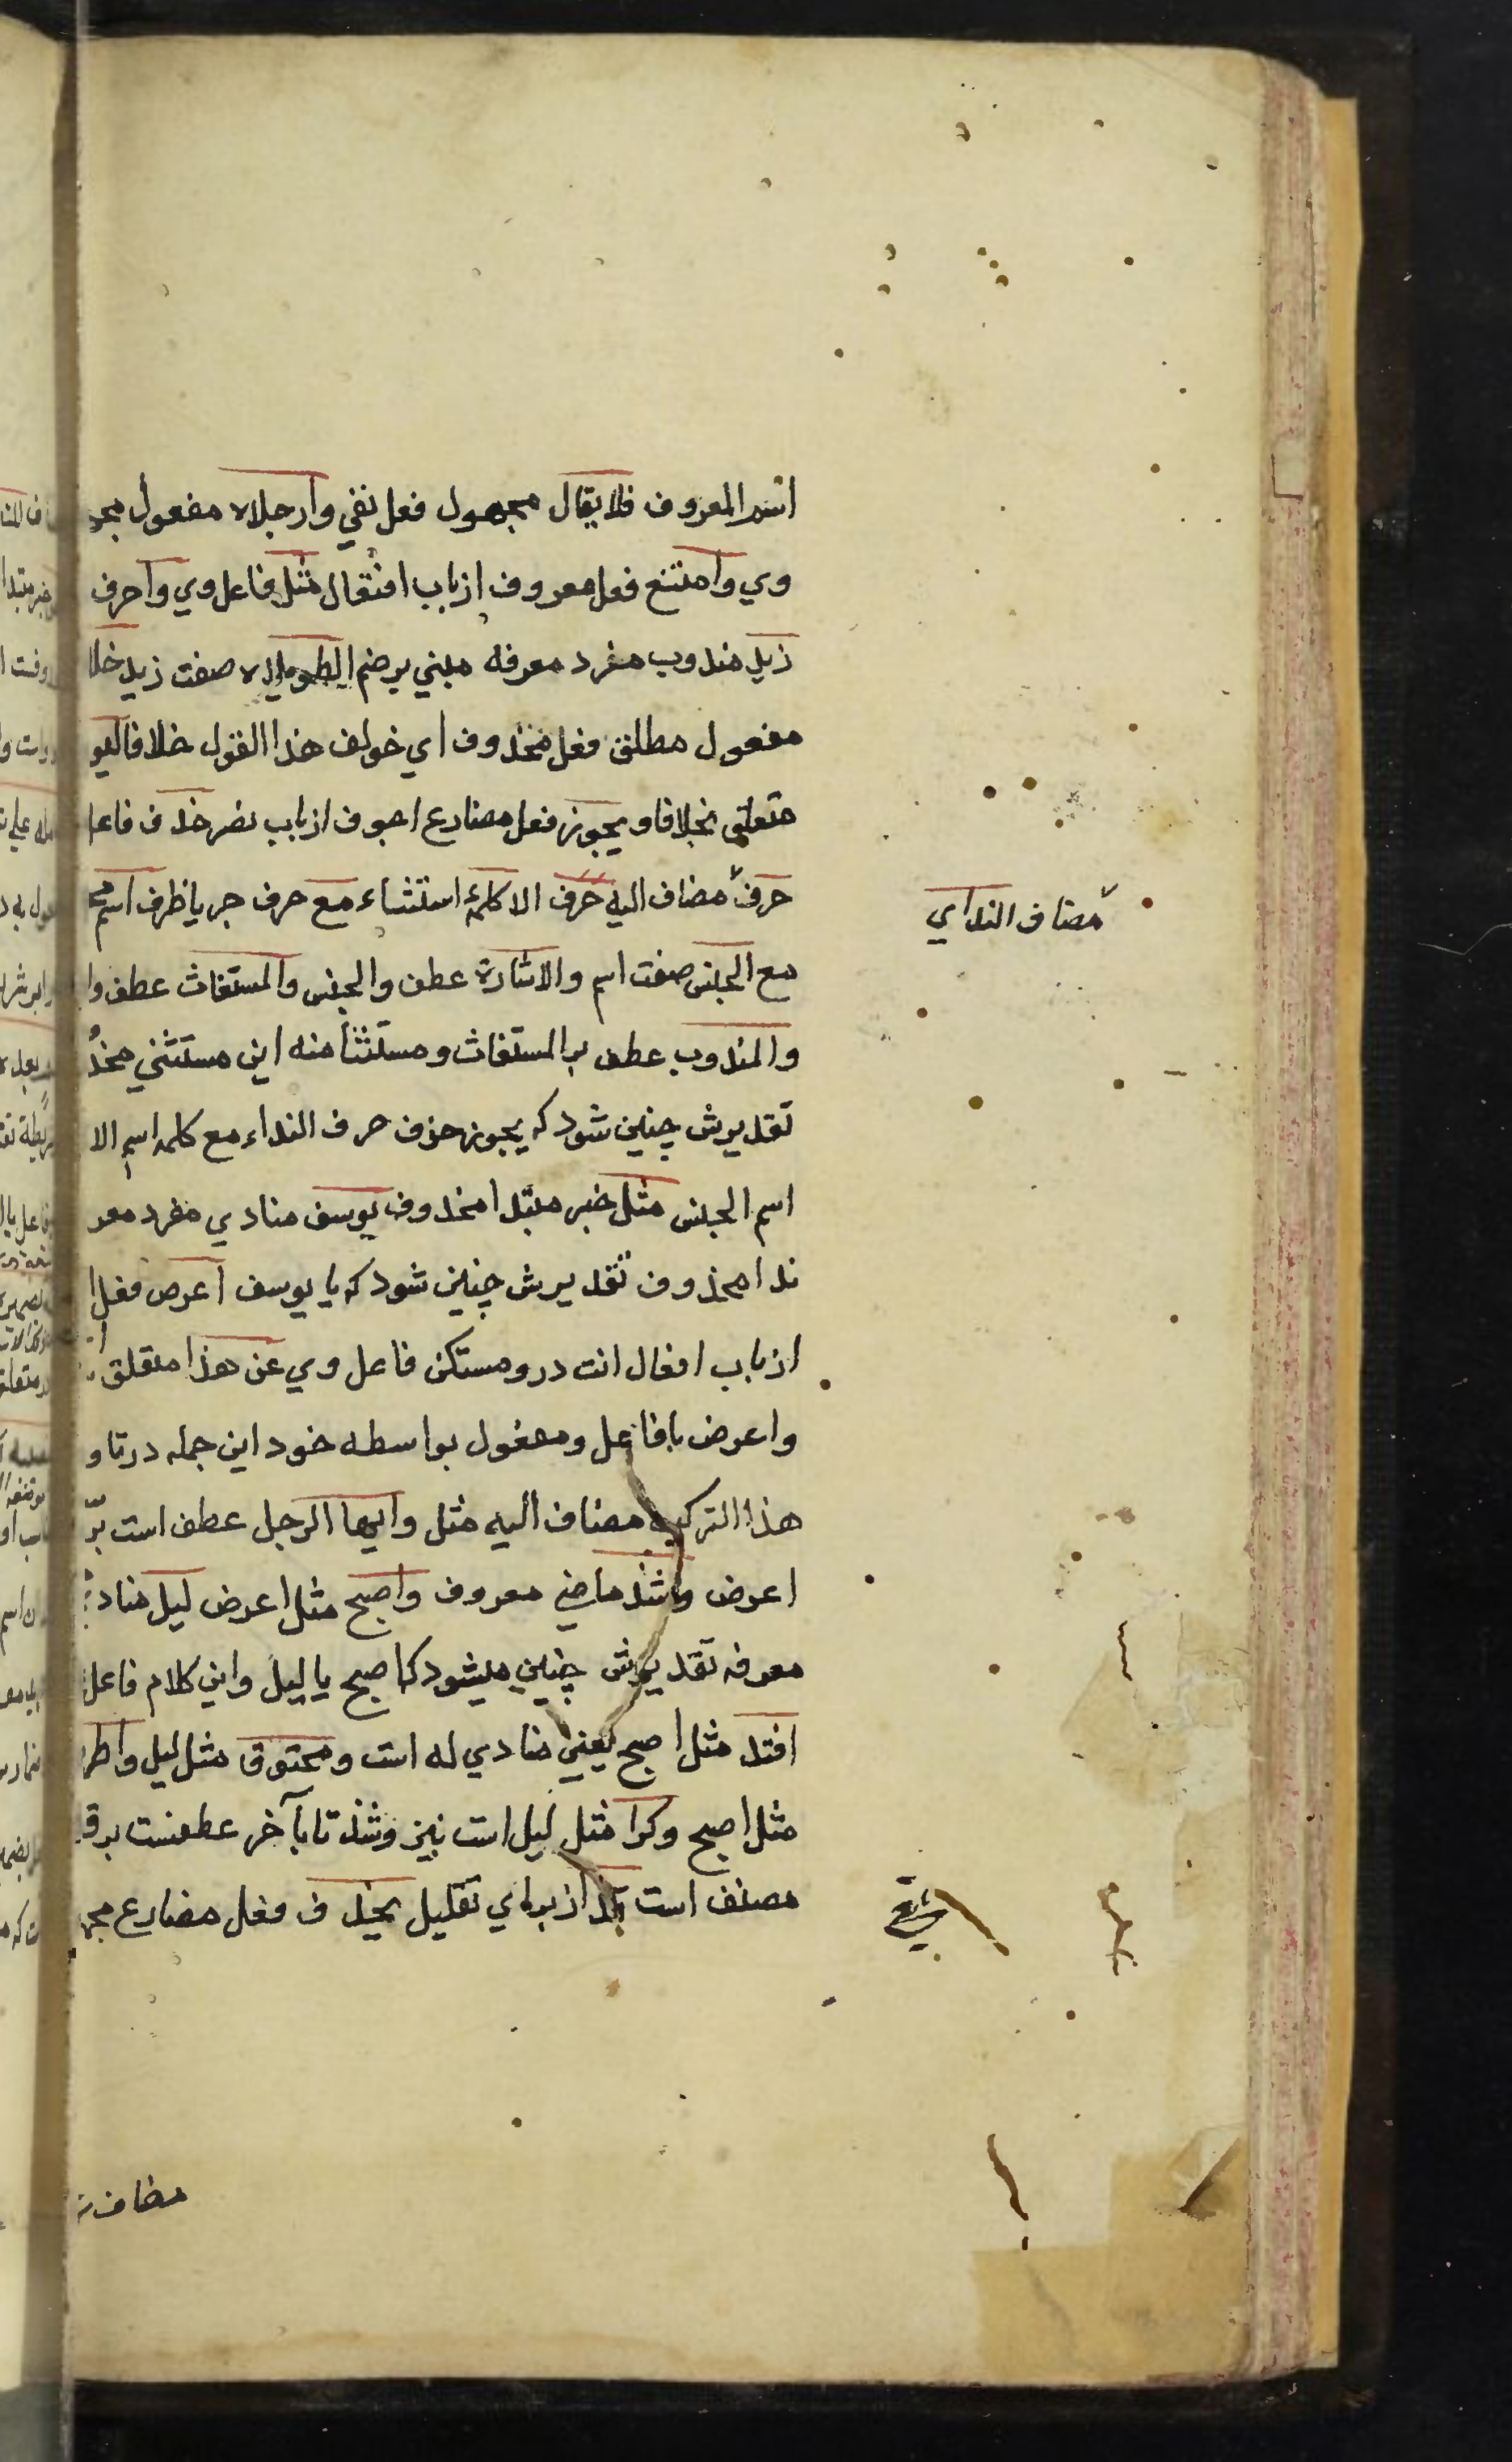 اسم المعروف فلا يقال مجهول فعل نفي وارجلاه مفعول مجر
وي وامتنع فعل معروف از باب افتعال مثل فاعل وي وا حرف
زيد مندوب مفرد معرفه مبني بر ضم الطويلاه صفت زيد خلا
مفعول مطلق فعل محذوف اي خولف هذا القول خلافا ليو
متعلق بخلافا ويجوز فعل مضارع اجوف از باب نصر حذف فاعل
حرف مضاف اليه حرف الا كلمهٔ استثناء مع حرف جر يا ظرف اسم مج
مضاف النداي
مع الجنس صفت اسم والاشارة عطف والجنس والمستغاث عطف وا
والمندوب عطف بر المستغاث ومستثنا منه اين مستثني محذ
تقديرش چنين شود كه يجوز حزف حرف النداء مع كلمه اسم الا
اسم الجنس مثل خبر مبتدا محذوف يوسف منادي مفرد معر
ندا محذوف تقديرش چنين شود كه يا يوسف اعرض فعل ا
از باب افعال انت درو مستكن فاعل وي عن هذا متعلق
واعرض با فاعل ومفعول بواسطه خود اين جمله در تاو
هذا التركيب مضاف اليه مثل وايها الرجل عطف است بر
اعرض وشذ ماضي معروف واصبح مثل اعرض ليل مناد
معرفه تقديرش چنين ميشود كه اصبح يا ليل واين كلام فاعل
افتد مثل اصبح يعني منادي له است ومخنوق مثل ليل واطر
مثل اصبح وكرا مثل ليل است نيز وشذ تا بآخر عطفست بر ق
مصنف است از براي تقليل يحذف فعل مضارع مجه
مضاف